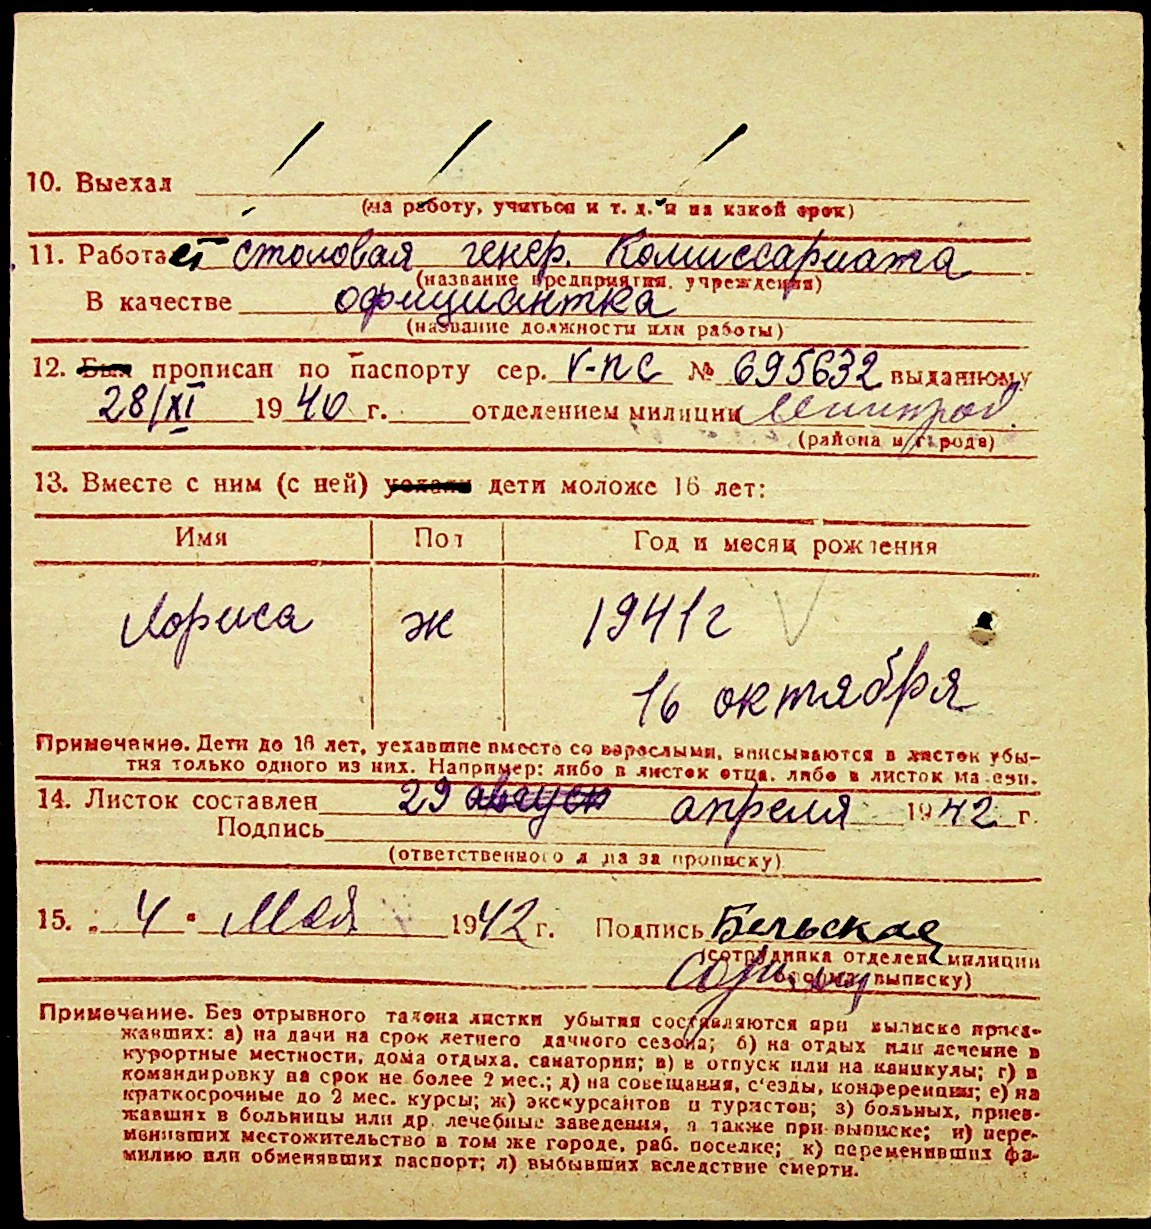 10. Выехал
(на работу, учиться и т. д. и на какой срок)
11. Работает столовая генер. Комиссариата
(название предприятия, учреждения)
В качестве официантка
(название должности или работы)
12. Был прописан по паспорту сер. V-ПС № 695632 выданному
28/XI 1940 г. отделением милиции
(района и города)
13. Вместе с ним (с ней) уехали дети моложе 16 лет:
Имя Пол Год и месяц рождения
Лориса ж 1941г
16 октября
Примечание. Дети до 16 лет, уехавшие вместе со взрослыми, вписываются в листок убы-
тия только одного из них. Например: либо в листок отца, либо в листок матери.
14. Листок составлен 29 август апреля 1942 г.
Подпись
(ответственного лица за прописку)
15. „ 4 " Мая 1942 г. Подпись Бельская
(сотрудника отделен. милиции
выписку)
Примечание. Без отрывного талона листки убытия составляются при выписке приез-
жавших: а) на дачи на срок летнего дачного сезона; б) на отдых или лечение в
курортные местности, дома отдыха, санатории; в) в отпуск или на каникулы; г) в
командировку на срок не более 2 мес.; д) на совещания, с'езды, конференции; е) на
краткосрочные до 2 мес. курсы; ж) экскурсантов и туристов; з) больных, приез-
жавших в больницы или др. лечебные заведения, а также при выписке; и) пере-
менивших местожительство в том же городе, раб. поселке; к) переменивших фа-
милию или обменявших паспорт; л) выбывших вследствие смерти.